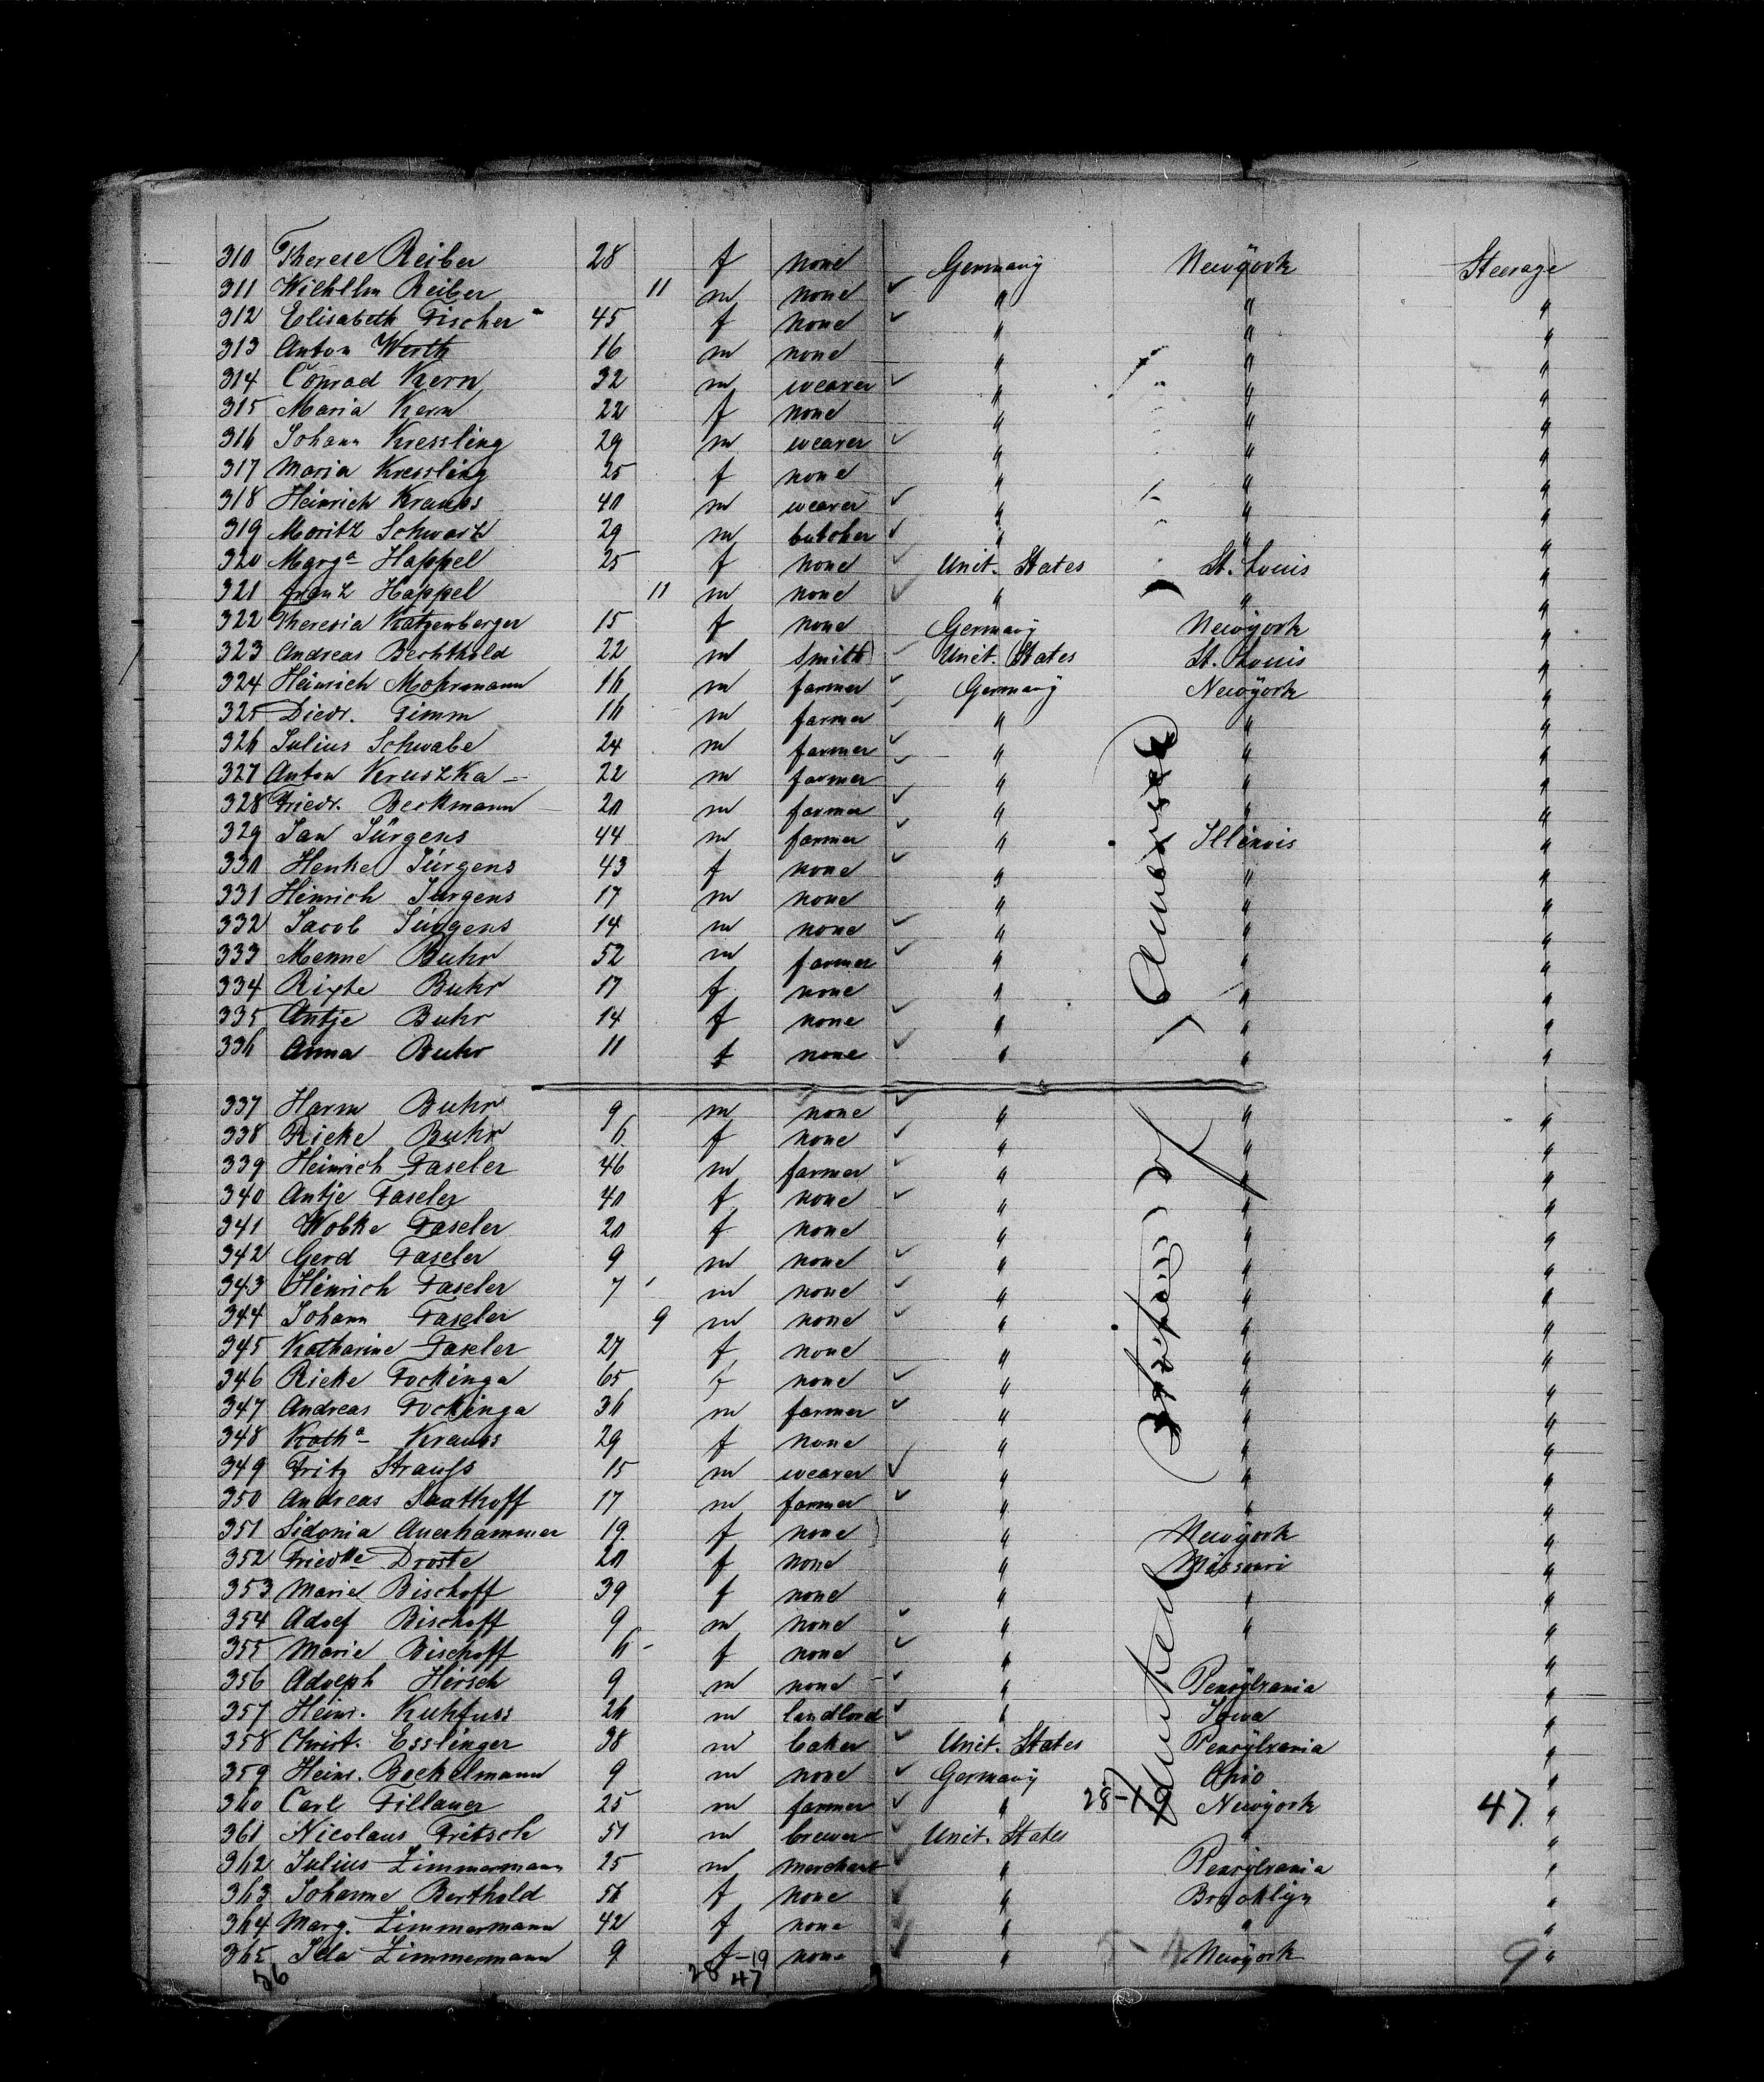 310 Therese Reiber 28 f none Germany Newyork Steerage
311 Wilhelm Reiber 11 m none " " "
312 Elisabeth Fischer 45 f none " " "
313 Anton Werth 16 m none " " "
314 Conrad Kern 32 m weaver " " "
315 Maria Kern 22 f none " " "
316 Johann Kressling 29 m weaver " " "
317 Maria Kressling 25 f none " " "
318 Heinrich Krauss 40 m weaver " " "
319 Moritz Schwartz 29 m butcher " " "
320 Marga Happel 25 f none Unit. States St. Louis "
321 Franz Happel 11 m none " " "
322 Theresia Katzenberger 15 f none Germany Newyork "
323 Andreas Bechthold 22 m smith Unit. States St. Louis "
324 Heinrich Mohrmann 16 m farmer Germany Newyork "
325 Diedr. Timm 16 m farmer " " "
326 Julius Schwabe 24 m farmer " " "
327 Anton Kruszka 22 m farmer " " "
328 Friedr. Beckmann 20 m farmer " " "
329 Jan Jürgens 44 m farmer " Illinois "
330 Henke Jürgens 43 f none " " "
331 Hinrich Jürgens 17 m none " " "
332 Jacob Jürgens 14 m none " " "
333 Menne Buhr 52 m farmer " " "
334 Rixte Buhr 17 f none " " "
335 Antje Buhr 14 f none " " "
336 Anna Buhr 11 f none " " "
337 Harm Buhr 9 m none " " "
338 Ricke Buhr 6 f none " " "
339 Heinrich Faseler 46 m farmer " " "
340 Antje Faseler 40 f none " " "
341 Wobke Faseler 20 f none " " "
342 Gerd Faseler 9 m none " " "
343 Hinrich Faseler 7 m none " " "
344 Johann Faseler 9 m none " " "
345 Katharine Faseler 27 f none " " "
346 Ricke Fockinga 65 f none " " "
347 Andreas Fockinga 36 m farmer " " "
348 Katha Krauss 29 f none " " "
349 Fritz Strauss 15 m weaver " " "
350 Andreas Saathoff 17 m farmer " " "
351 Sidonia Auerhammer 19 f none " Newyork "
352 Friedtte Droste 20 f none " Missouri "
353 Marie Bischoff 39 f none " " "
354 Adolf Bischoff 9 m none " " "
355 Marie Bischoff 6 f none " " "
356 Adolph Hirsch 9 m none " Pensylvania "
357 Heinr. Kuhfuss 26 m landlord " Iowa "
358 Christ. Esslinger 38 m baker Unit. States Pensylvania "
359 Heinr. Bockelmann 9 m none Germany Ohio "
360 Carl Fillauer 25 m farmer " Newyork 47. "
361 Nicolaus Fritsch 51 m brewer Unit. States " "
362 Julius Zimmermann 25 m merchant " Pensylvania "
363 Johanne Berthold 56 f none " Brooklyn "
364 Marg. Zimmermann 42 f none " " "
365 Ida Zimmermann 9 f-19 none " Newyork 9 "
56 28 47